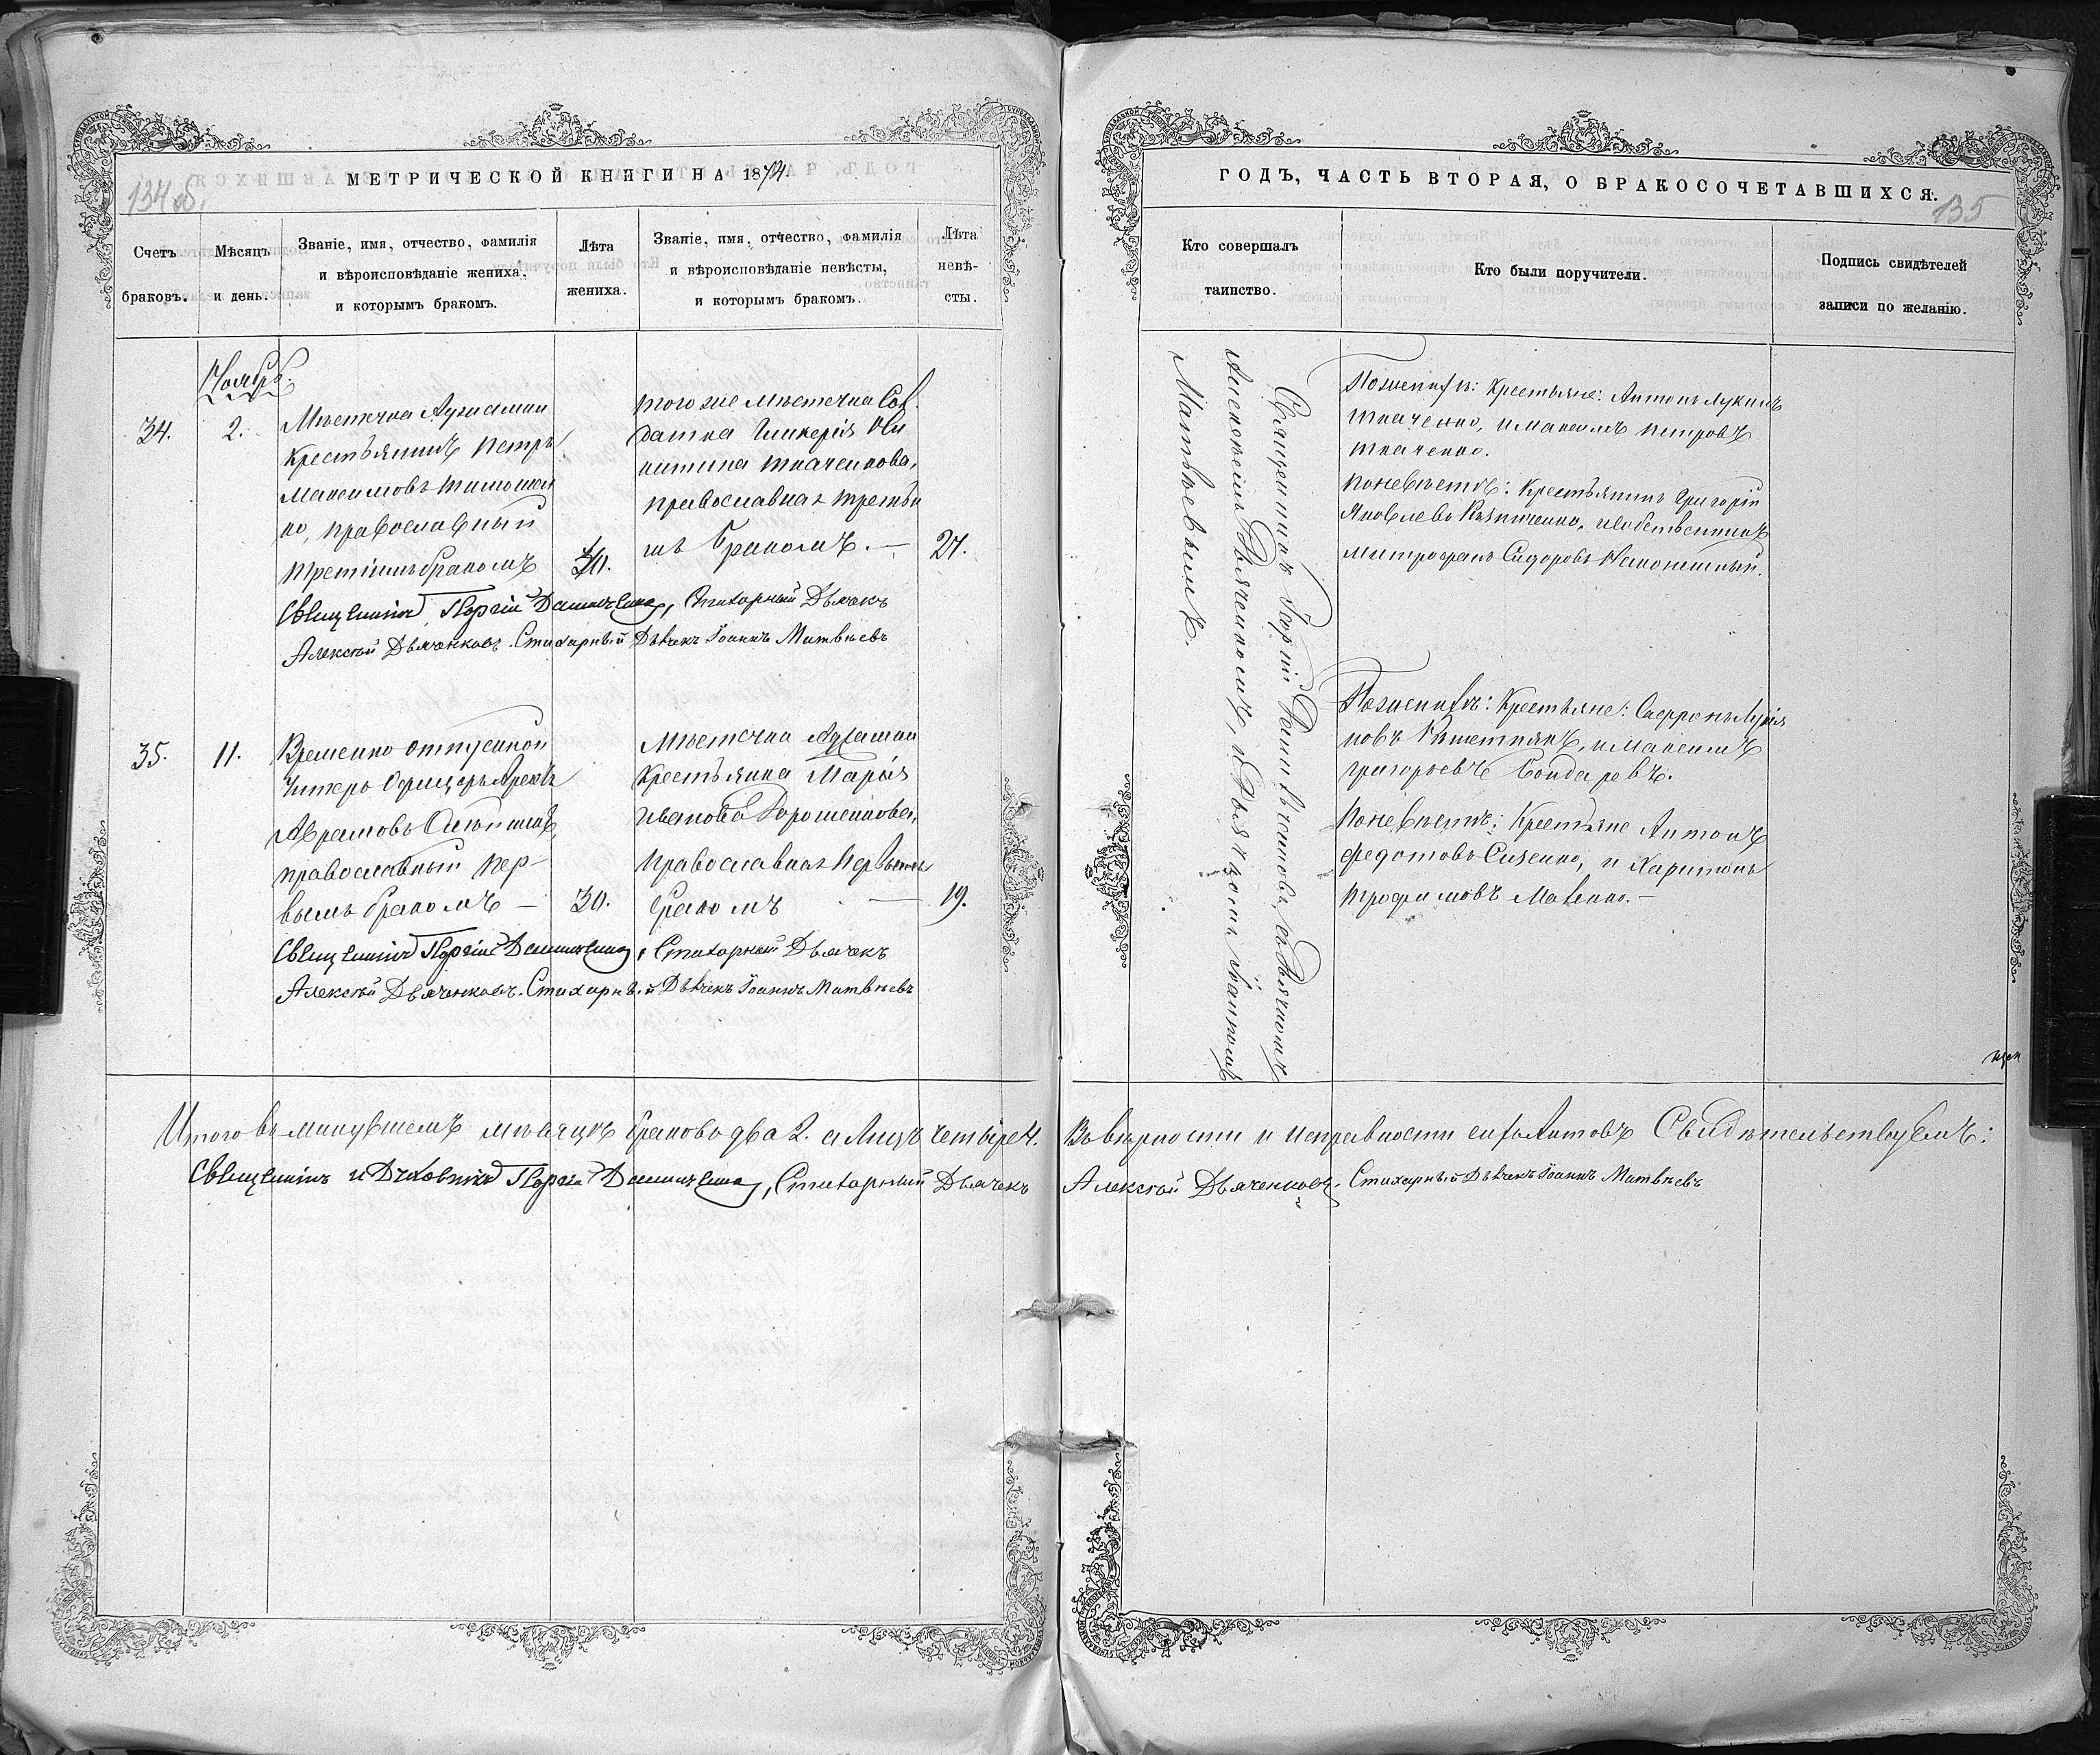 134 об.
МЕТРИЧЕСКОЙ КНИГИ НА 1874.
Счетъ браковъ.
Мѣсяцъ и день.
Званіе, имя, отчество, фамилія
и вѣроисповѣданіе жениха,
и которымъ бракомъ.
Лѣта
жениха.
Званіе, имя, отчество, фамилія
и вѣроисповѣданіе невѣсты,
и которымъ бракомъ.
Лѣта
невѣ-
сты.
Ноябрь.
34.
2.
Мѣстечка
крестьянинъ Петръ
Максимовъ Тимошен
ко, православный
третіимъ бракомъ
40.
того же мѣстечка Сол
датка Гликерія Ни
китина Ткаченкова,
православная третьи
мъ бракомъ. —
27.
Священникъ Георгій Стихарный Дьячекъ
Алексѣй Дьяченковъ. Стихарный Дьячекъ Іоаннъ Матвѣевъ
35.
11.
Временно отпускной
Унтеръ Офицеръ
Аврамовъ
православный пер-
вымъ бракомъ —
30.
Мѣстечка
Крестьянка Марія
Иванова Дорошенкова,
православная первымъ
бракомъ —
19.
Священникъ Георгій Стихарный Дьячекъ
Алексѣй Дьяченковъ. Стихарный Дьячекъ Іоаннъ Матвѣевъ
Итого въ минувшемъ мѣсяцѣ браковъ два 2. а лицъ четыре 4.
Священникъ и Духовникъ Георгій Стихарный Дьячекъ
135
ГОДЪ, ЧАСТЬ ВТОРАЯ, О БРАКОСОЧЕТАВШИХСЯ.
Кто совершалъ
таинство.
Кто были поручители.
Подпись свидѣтелей
записи по желанію.
Священникъ Георгій съ Дьячкомъ
Алексѣемъ Дьяченковымъ, и Дьячкомъ Іоанномъ
Матвѣевымъ.
По женихѣ: Крестьяне: Антонъ Лукинъ
Ткаченко, и Максимъ Петровъ
Ткаченко.
по невѣстѣ: Крестьянинъ Григорій
Яковлевъ и собственникъ
Митрофанъ Сидоровъ
По женихѣ: Крестьяне:
новъ и Максимъ
Григорьевъ Бондаревъ.
По невѣстѣ: Крестьяне Антонъ
Федотовъ и Харитонъ
Трофимовъ —
Въ вѣрности и исправности сихъ Актовъ Свидѣтельствуемъ:
Алексѣй Дьяченковъ. Стихарный Дьячекъ Іоаннъ Матвѣевъ